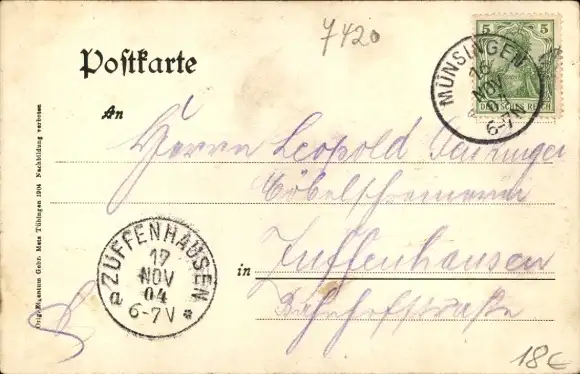 7420
Postkarte
5 5
DEUTSCHES REICH
MÜNSINGEN
16
NOV
04
6-7N
An
Herrn Leopold
in Zuffenhausen
Bahnhofstraße
ZUFFENHAUSEN
17
NOV
04
6-7V
a
Orig.-Eigentum Gebr. Metz Tübingen 1904 Nachbildung verboten
18€